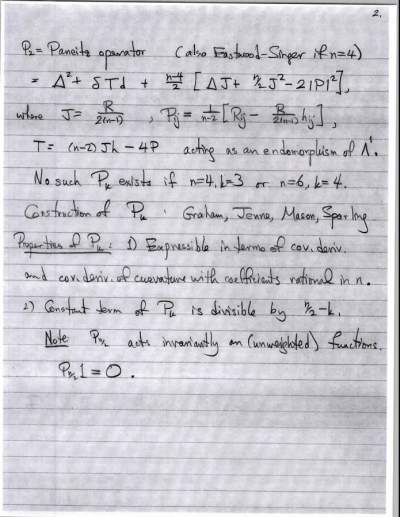 2.
P₂ = Paneitz operator (also Eastwood-Singer if n=4)
= Δ² + δTd + (n-4)/2 [ΔJ + n/2 J² - 2|P|²],
where J = R/2(n-1), Pij = 1/(n-2) [Rij - R/2(n-1) hij],
T = (n-2)Jh - 4P acting as an endomorphism of Λ¹.
No such Pk exists if n=4, k=3 or n=6, k=4.
Construction of Pk: Graham, Jenne, Mason, Sparling
Properties of Pk: 1) Expressible in terms of cov. deriv.
and cov. deriv. of curvature with coefficients rational in n.
2) Constant term of Pk is divisible by n/2-k.
Note Pn/2 acts invariantly on (unweighted) functions.
Pn/2 1 = 0.